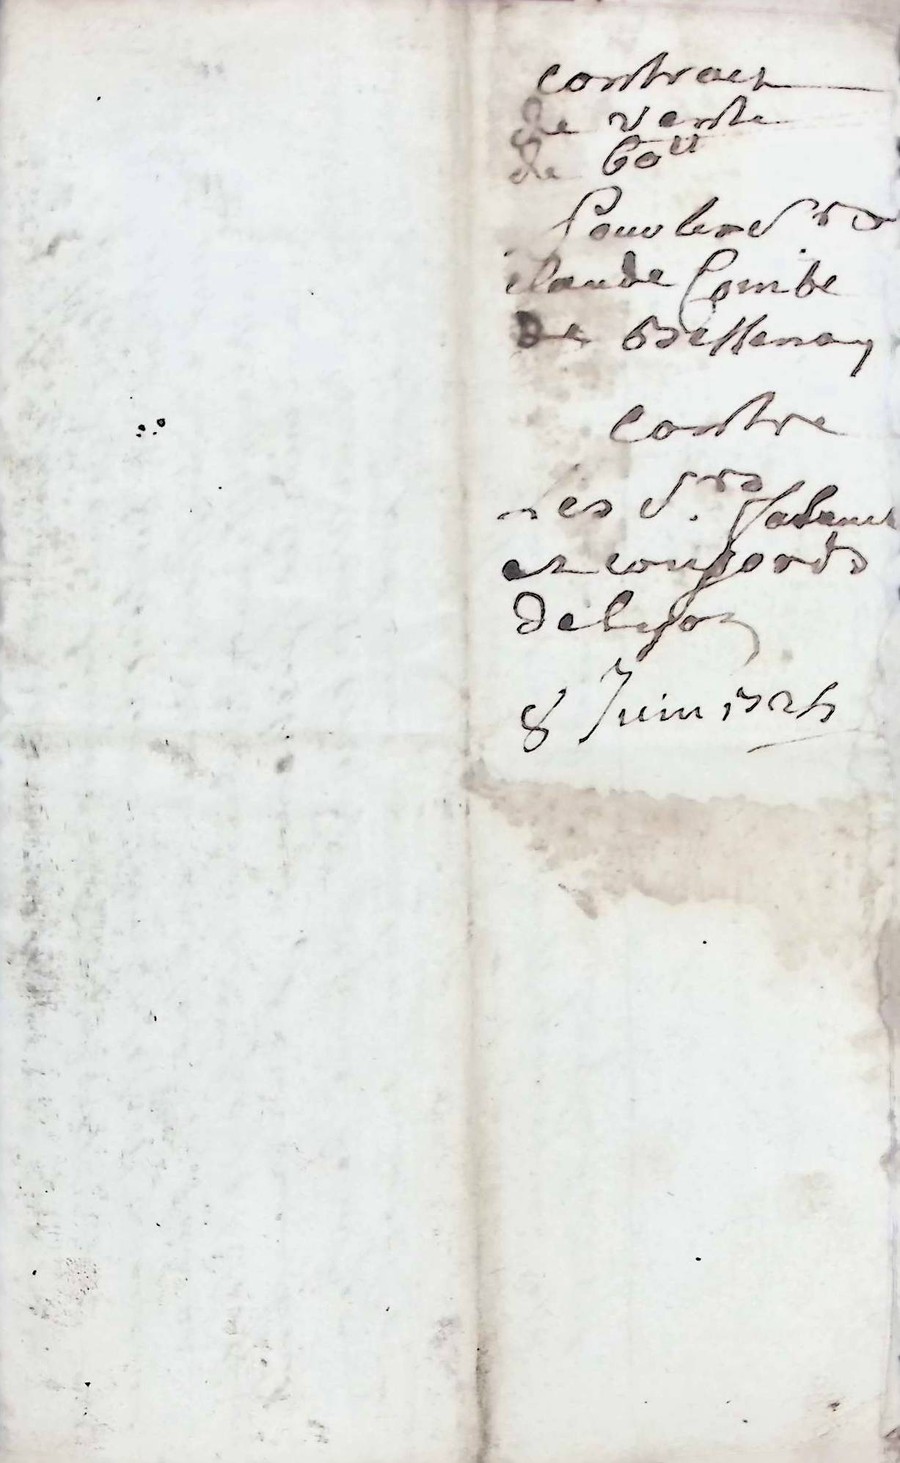 contract
de vente
de 60ll
Pour le sr
claude Combe
de Bessenay
contre
Les Srs
et consorts
de Lyon
8 Juin